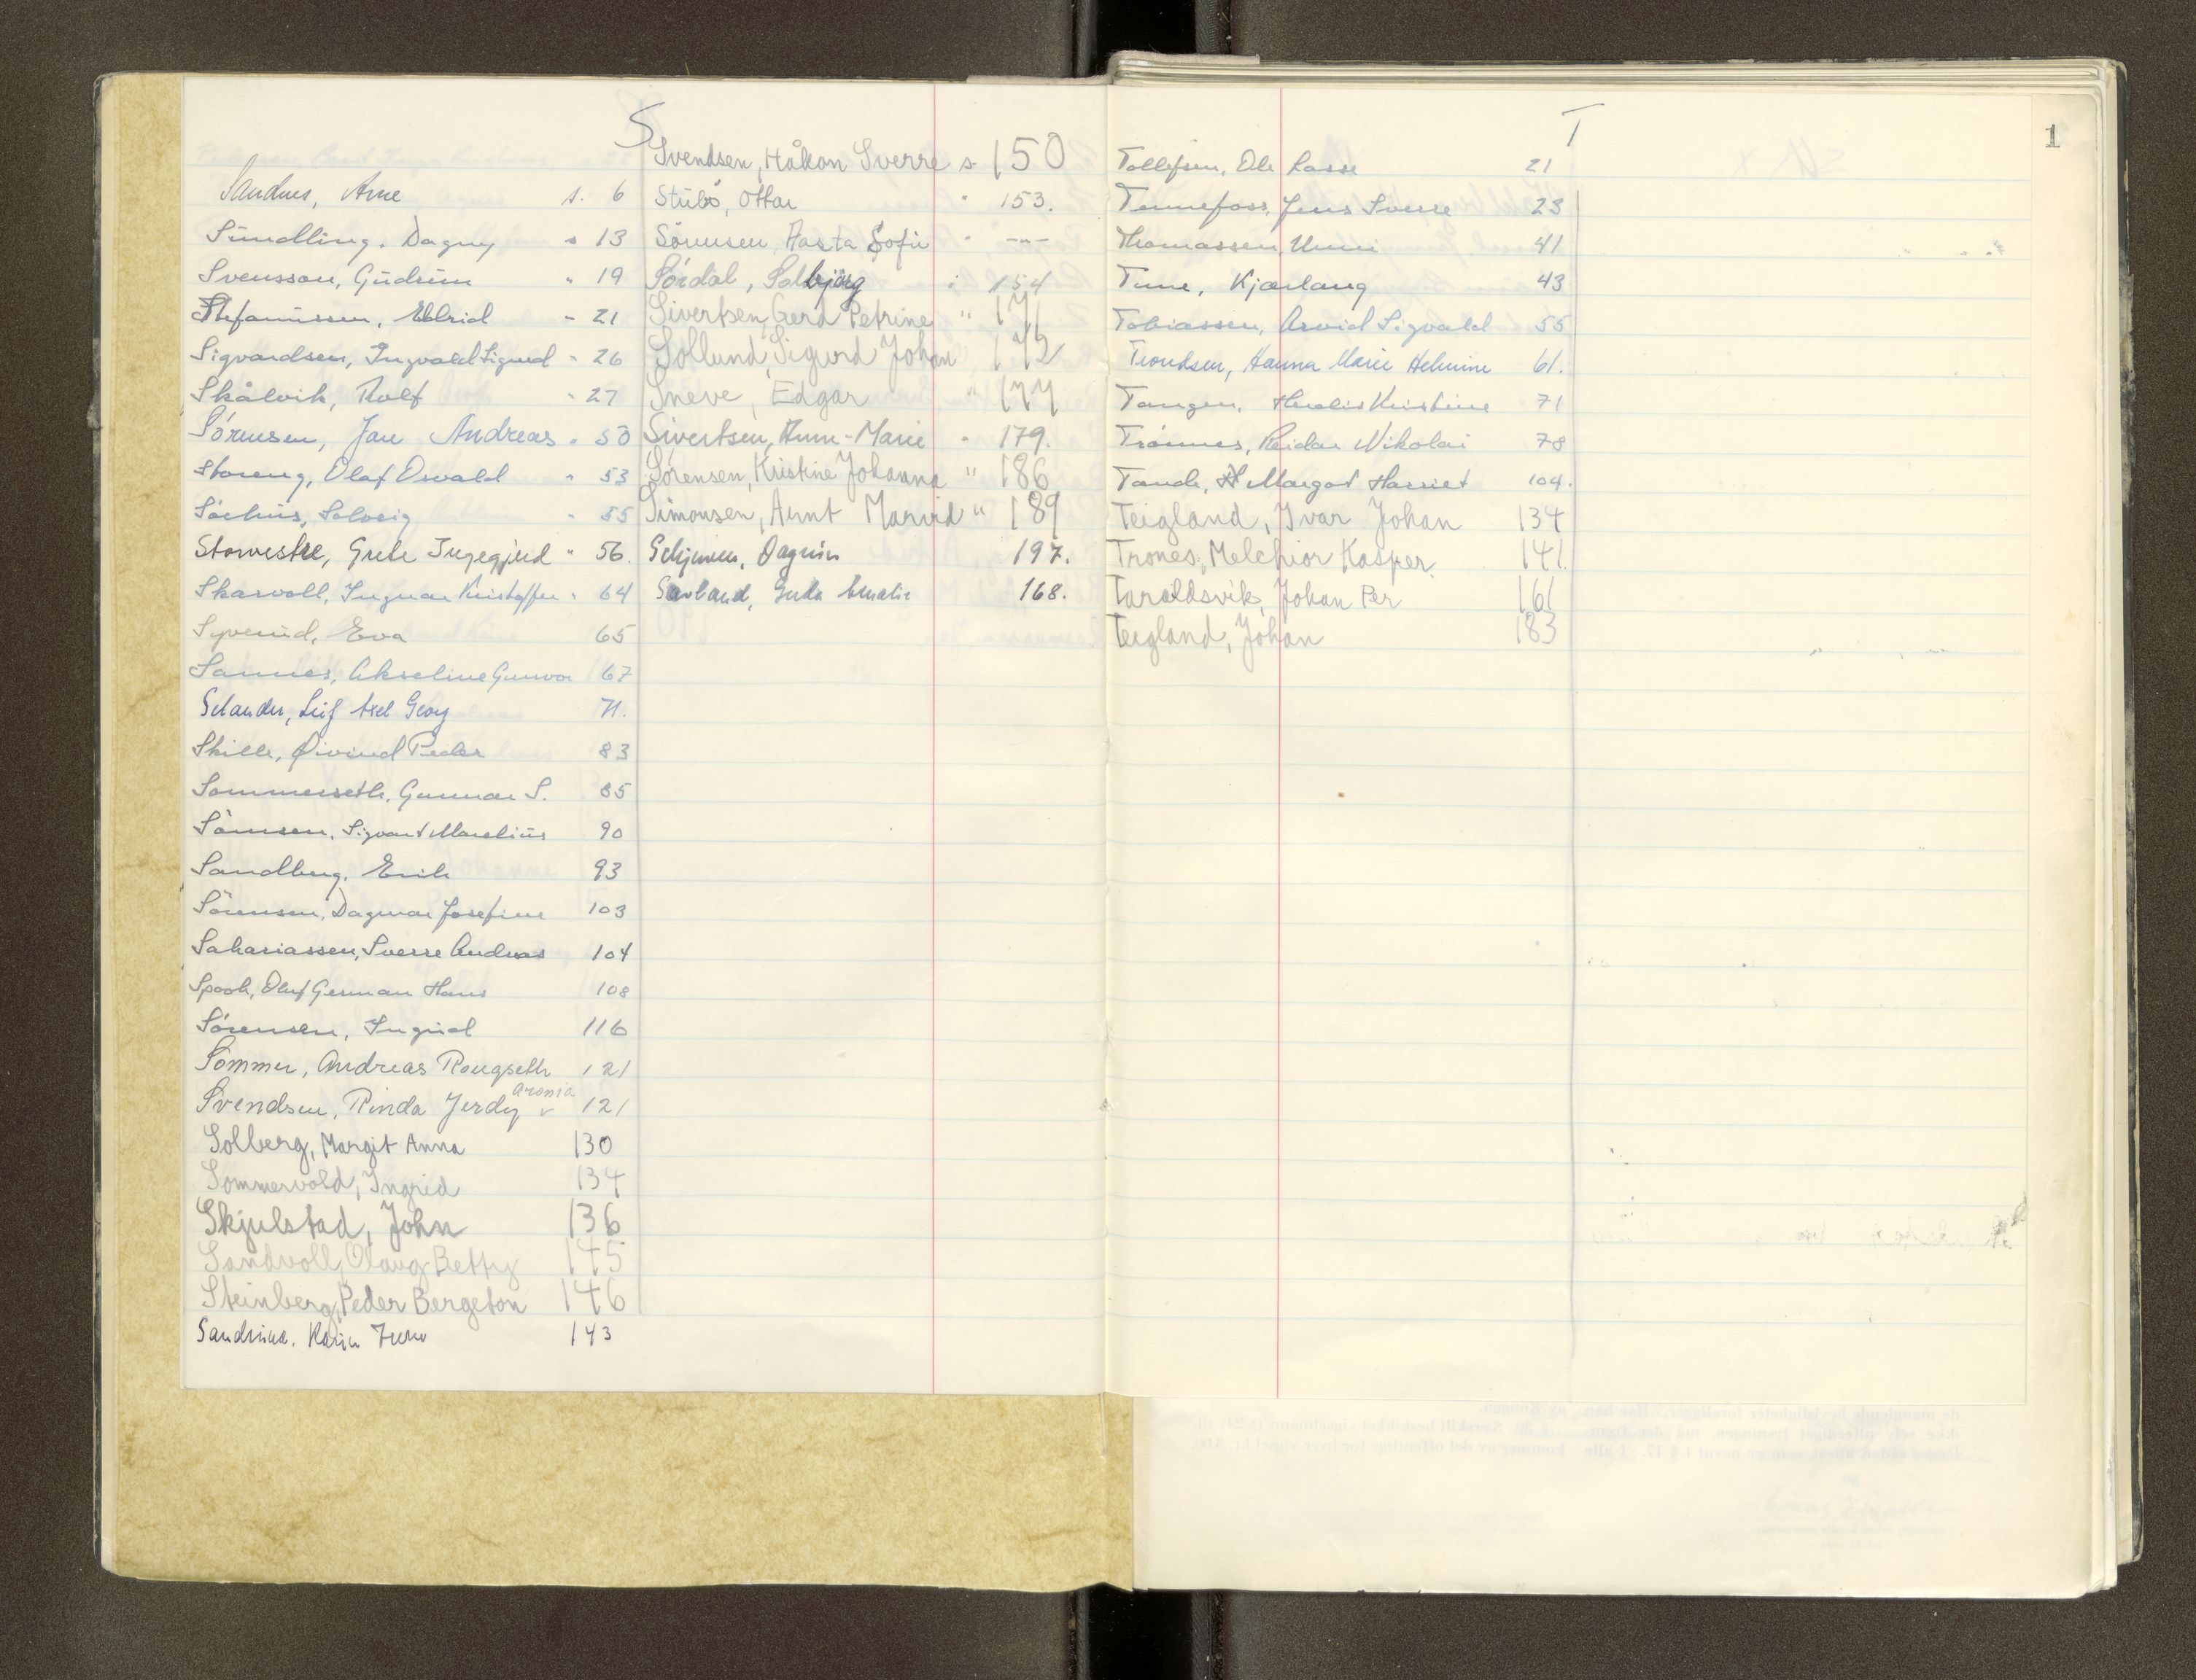 S
Sandnes, Arne s. 6
Sundling, Dagny " 13
Svensson, Gudrun " 19
Stefanussen, Eldrid " 21
Sigvardsen, Ingvald Sigurd " 26
Skålvik, Rolf " 27
Sörensen, Jan Andreas " 50
Storeng, Olaf Osvald " 53
Solveig " 55
Storvestre, Grete Ingegjerd " 56.
Skarvoll, Ingvar Kristoffer " 64
Syverud, Eva 65
Sannes, Akseline Gunvor 67
Selander, Leif Axel Georg 71.
Skille, Øivind Peder 83
Sommerseth, Gunnar S. 85
Sörensen, Sigvart Marelius 90
Sandberg, Erik 93
Sörensen, Dagmar Josefine 103
Sakariassen, Sverre Andreas 104
Spook, Oluf German Hans 108
Sörensen, Ingrid 116
Sommer, Andreas Rongseth 121
Aronia
Svendsen, Rinda Jerdy v 121
Solberg, Margit Anna 130
Sommervold, Ingrid 134
Skjulstad, John 136
Sandvoll, Olaug Betty 145
Steinberg, Peder Bergeton 146
Karin 143
Svendsen, Håkon Sverre s. 150
Stubø, Ottar " 153.
Sörensen, Aasta Sofie " ---
Sørdal, Solbjørg " 154
Sivertsen, Gerd Petrine " 171
Sollund, Sigurd Johan 172
Sneve, Edgar " 177
Sivertsen, Anne-Marie " 179.
Sørensen, Kristine Johanna " 186
Simonsen, Arnt Marvid " 189
Dagrun 197.
168.
T
Tollefsen, Ole Lasse 21
Tennefoss, Jens Sverre 23
Thomassen, Unni 41
Tune, Kjærlaug 43
Tobiassen, Arvid Sigvald 55
Trondsen, Hanna Marie Helmine 61.
Tangen, Herdis Kristine 71
Trönnes, Reidar Nikolai 78
Tande, H Margot Harriet 104.
Teigland, Ivar Johan 134
Trones, Melchior Kasper. 141.
Taraldsvik, Johan Per 161
Teigland, Johan 183
1